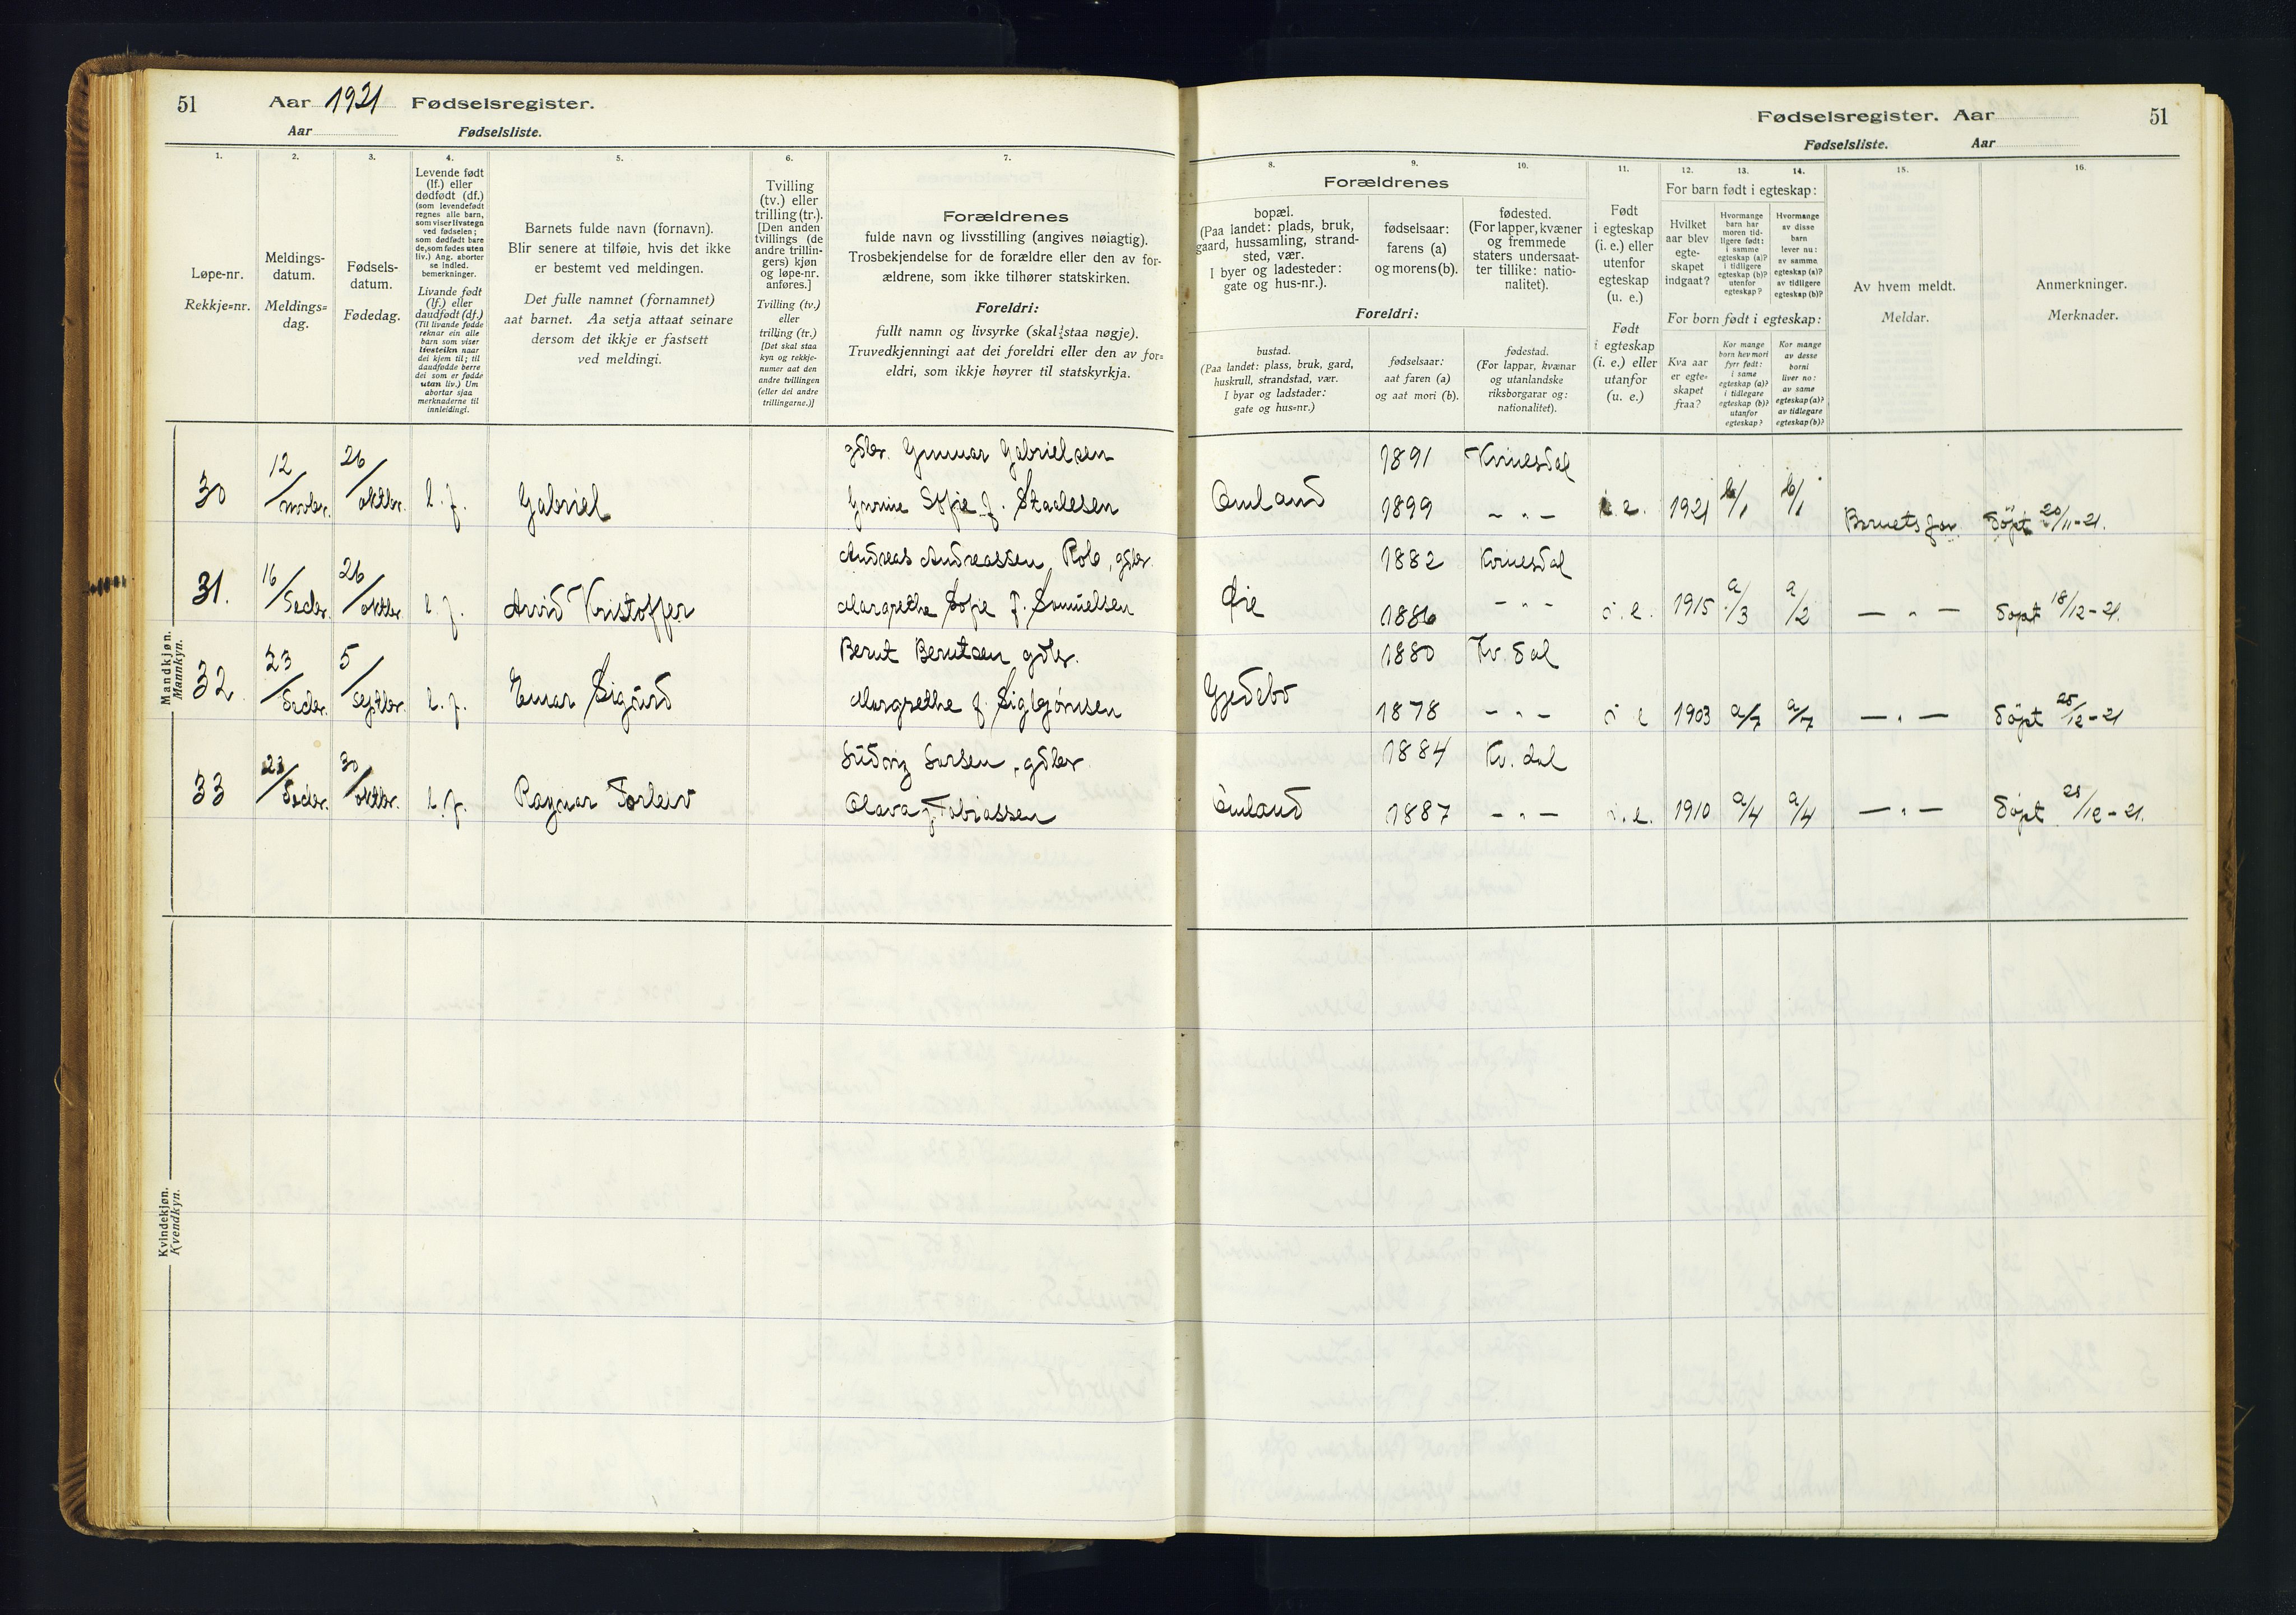 51 Aar 1921 Fødselsregister.
Aar Fødselsliste.
Fødselsregister. Aar 51
Fødselsliste. Aar
1. 2. 3. 4. 5. 6. 7. 8. 9. 10. 11. 12. 13. 14. 15. 16.
Løpe-nr.
Rekkje=nr.
Meldings-
datum.
Meldings=
dag.
Fødsels-
datum.
Fødedag.
Levende født
(lf.) eller
dødfødt (df.)
(som levendefødt
regnes alle barn,
som viser livstegn
ved fødselen;
som dødfødt bare
de, som fødes uten
liv.) Ang. aborter
se indled.
bemerkninger.
Livande født
(lf.) eller
daudfødt (df.)
(Til livande fødde
reknar ein alle
barn som viser
livsteikn naar
dei kjem til; til
daudfødde berre
dei som er fødde
utan liv.) Um
abortar sjaa
merknaderne til
innleidingi.
Barnets fulde navn (fornavn).
Blir senere at tilføie, hvis det ikke
er bestemt ved meldingen.
Det fulle namnet (fornamnet)
aat barnet. Aa setja attaat seinare
dersom det ikkje er fastsett
ved meldingi.
Tvilling
(tv.) eller
trilling (tr.).
[Den anden
tvillings (de
andre trillin-
gers) kjøn
og løpe-nr.
anføres.]
Tvilling (tv.)
eller
trilling (tr.)
[Det skal staa
kyn og rekkje-
numer aat den
andre tvillingen
(eller dei andre
trillingarne.)]
Forældrenes
fulde navn og livsstilling (angives nøiagtig).
Trosbekjendelse for de forældre eller den av for-
ældrene, som ikke tilhører statskirken.
Foreldri:
fullt namn og livsyrke (skal staa nøgje).
Truvedkjenningi aat dei foreldri eller den av for=
eldri, som ikkje høyrer til statskyrkja.
Forældrenes
bopæl.
(Paa landet: plads, bruk,
gaard, hussamling, strand-
sted, vær.
I byer og ladesteder:
gate og hus-nr.).
fødselsaar:
farens (a)
og morens (b).
fødested.
(For lapper, kvæner
og fremmede
staters undersaat-
ter tillike: natio-
nalitet).
Foreldri:
bustad.
(Paa landet: plass, bruk, gard,
huskrull, strandstad, vær.
I byar og ladstader:
gate og hus-nr.)
fødselsaar:
aat faren (a)
og aat mori (b).
fødestad.
(For lappar, kvænar
og utanlandske
riksborgarar og:
nationalitet).
Født
i egteskap
(i. e.) eller
utenfor
egteskap
(u. e.)
Født
i egteskap
(i. e.) eller
utanfor
(u. e.)
For barn født i egteskap:
Hvilket
aar blev
egte-
skapet
indgaat?
Hvormange
barn har
moren tid-
ligere født:
i samme
egteskap (a)?
i tidligere
egteskap (b)?
utenfor
egteskap?
Hvormange
av disse
barn
lever nu:
av samme
egteskap (a)?
av tidligere
egteskap (b)?
For born født i egteskap:
Kva aar
er egte-
skapet
fraa?
Kor mange
born hev mori
fyrr født:
i same
egteskap (a)?
i tidlegare
egteskap (b)?
utanfor
egteskap?
Kor mange
av desse
borni
liver no:
av same
egteskap (a)?
av tidlegare
egteskap (b)?
Av hvem meldt.
Meldar.
Anmerkninger.
Merknader.
Mandkjøn.
Mannkyn.
gdbr. Gunnar Gabrielsen 1891 Kvinesdal
30 12/novbr. 26/oktbr. l. f. Gabriel Gurine Sofie f. Staalesen Omland 1899 – " – i. e. 1921 b/1 b/1 Barnets far døpt 20/11-21.
Andreas Andreassen Rob, gdbr. 1882 Kvinesdal
31. 16/decbr. 26/oktbr. l. f. Arvid Kristoffer Margrethe Sofie f. Samuelsen Øie 1886 – " – i. e. 1915 a/3 a/2 – " – døpt 18/12-21.
Berut Berutsen gdbr. 1880 Kv. dal
32 23/decbr. 5/septbr. l. f. Einar Sigurd Margrethe f. Sigbjørnsen Gjedebo 1878 – " – i e 1903 a/7 a/7 – " – døpt 25/12-21
Ludvig Larsen, gdbr. 1884 Kv. dal
33 23/decbr. 30/oktbr. l. f. Ragnar Torleiv Olava f. Tobiassen Omland 1887 – " – i. e. 1910 a/4 a/4 – " – døpt 28/12-21.
Kvindekjøn.
Kvendkyn.